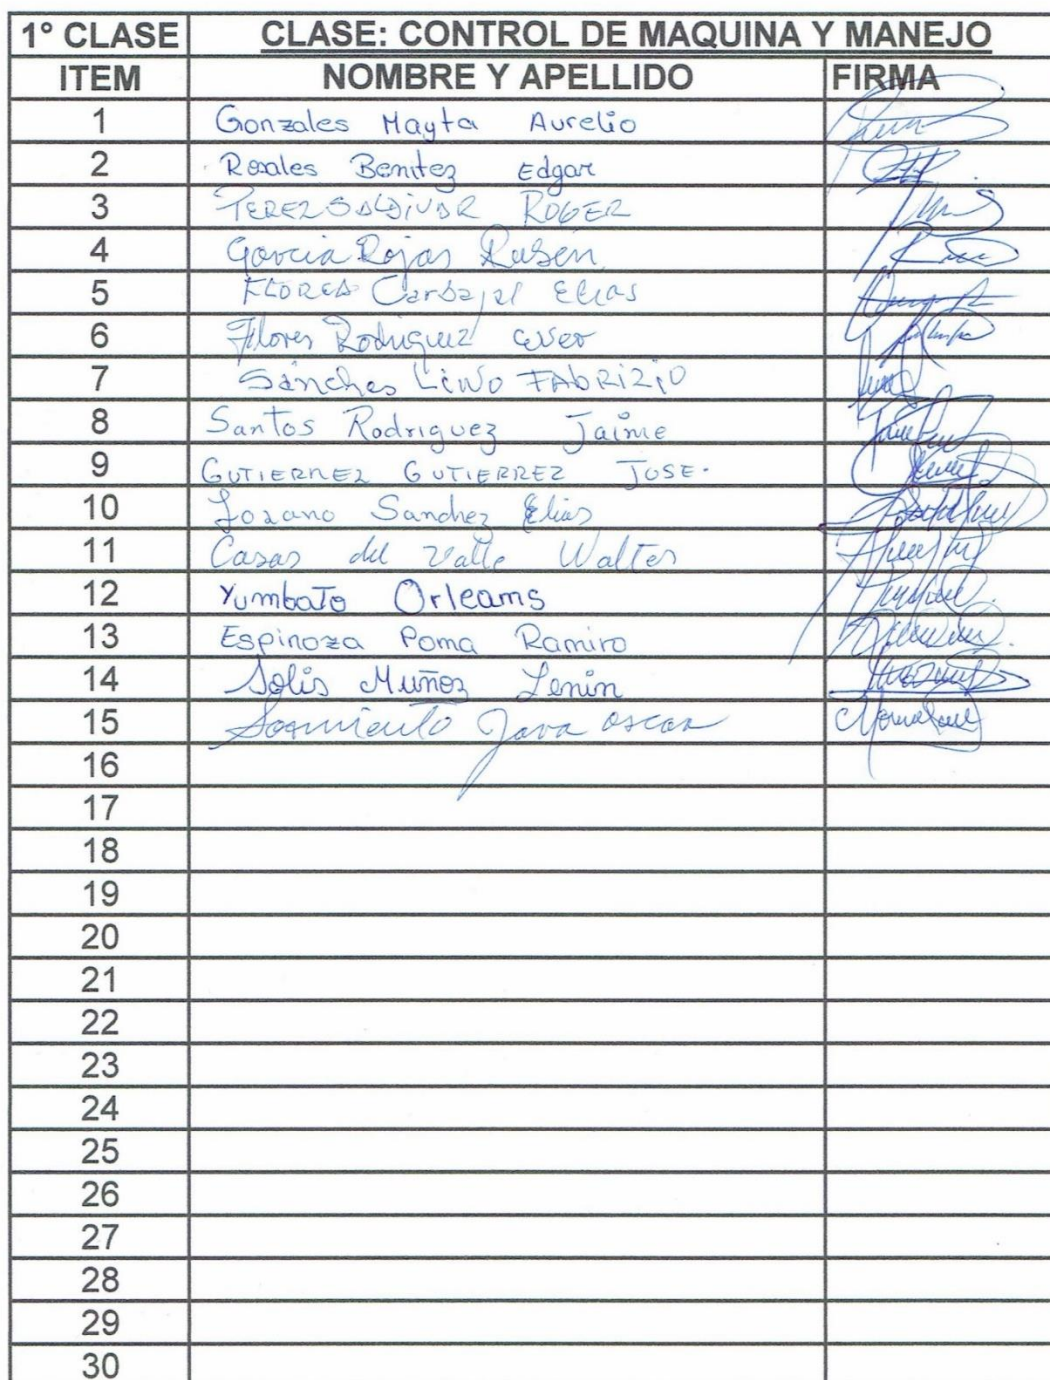 1° CLASE CLASE: CONTROL DE MAQUINA Y MANEJO
ITEM NOMBRE Y APELLIDO FIRMA
1 Gonzales Mayta Aurelio
2 Rosales Benitez Edgar
3 PEREZ SALDIVAR ROGER
4 Garcia Rojas Rubén
5 FLORES Carbajal Elias
6 Flores Rodriguez
7 Sánches LiNo FAbRiZiO
8 Santos Rodriguez Jaime
9 GUTIERREZ GUTIERREZ JOSE.
10 Lozano Sanchez Elias
11 Casas del Valle Walter
12 YumbaTo Orleams
13 Espinoza Poma Ramiro
14 Solis Muñoz Lenin
15 Sarmiento Java oscar
16
17
18
19
20
21
22
23
24
25
26
27
28
29
30